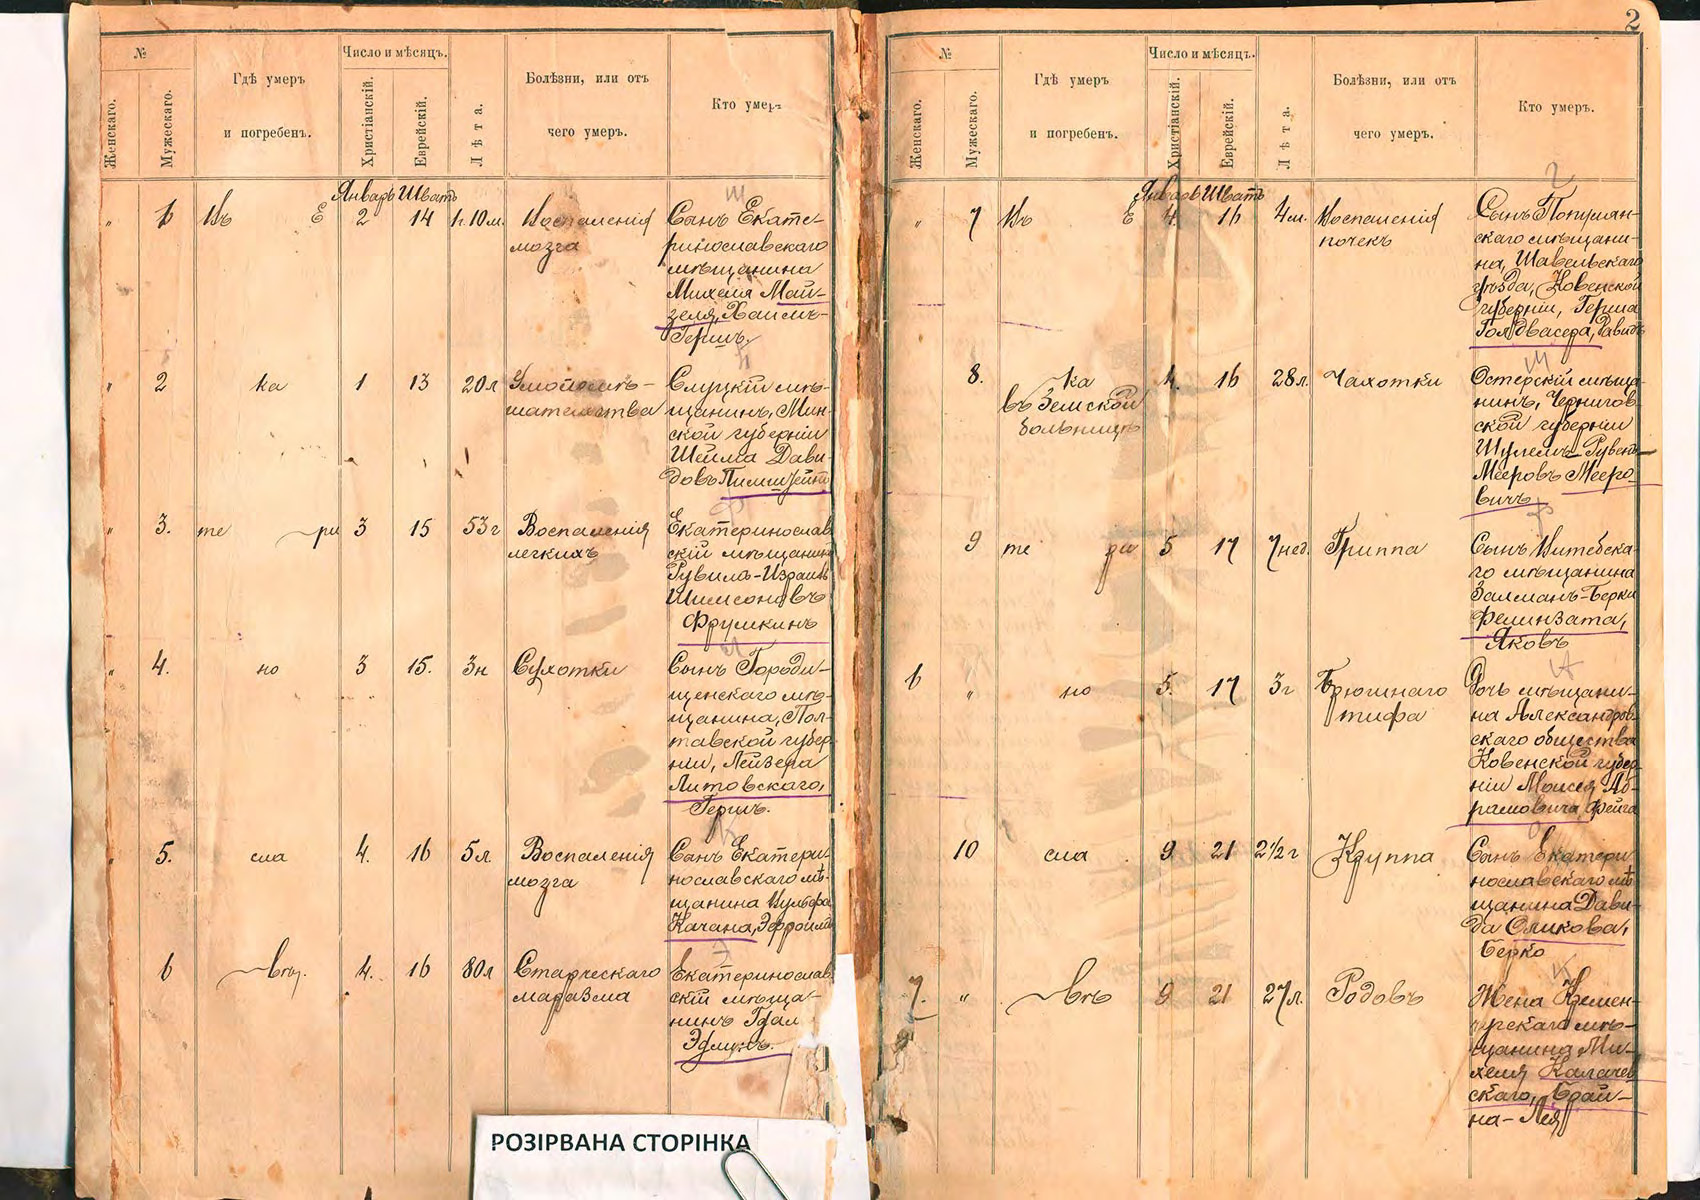 2
№
Женскаго.
Мужескаго.
Гдѣ умеръ
и погребенъ.
Число и мѣсяцъ.
Христіанскій.
Еврейскій.
Лѣта.
Болѣзни, или отъ
чего умеръ.
Кто умеръ
Январь Шватъ
" 1 Въ Е 2 14 1г. 10м. Воспаленія
мозга
Сынъ Екате-
ринославскаго
мѣщанина
Михеля Май-
зеля, Хаимъ-
Гершъ.
" 2 ка 1 13 20л Умопомѣ-
шательства
Слуцкій мѣ-
щанинъ, Мин-
ской губерніи
Шейма Дави-
довъ
" 3. те ри 3 15 53г Воспаленія
легкихъ
Екатеринослав
скій мѣщанинъ
Рувилъ-Израиль
Шимсоновъ
Фрумкинъ
" 4. но 3 15. 3н Сухотки
Сынъ Городи-
щенскаго мѣ-
щанина, Пол-
тавской губер
ніи, Лейзера
Литовскаго,
Гершъ.
" 5. сла 4. 16 5л. Воспаленія
мозга
Сынъ Екатери
нославскаго мѣ-
щанина Вульфа
Качана, Эфроимъ
6 въ. 4. 16 80л Старческаго
маразма
Екатеринослав
скій мѣща-
нинъ
Эдлинъ.
РОЗІРВАНА СТОРІНКА
№
Женскаго.
Мужескаго.
Гдѣ умеръ
и погребенъ.
Число и мѣсяцъ.
Христіанскій.
Еврейскій.
Лѣта.
Болѣзни, или отъ
чего умеръ.
Кто умеръ.
Январь Шватъ
" 7 Въ Е 4. 16 4м. Воспаленія
почекъ
Сынъ Попелян-
скаго мѣщани-
на, Шавельскаго
уѣзда, Ковенской
губерніи, Герша
Голдвасера, Давидъ
8. ка 4. 16 28л. Чахотки
въ Земской
больницѣ
Остерскій мѣща-
нинъ, Чернигов
ской губерніи
Шулемъ-Рувенъ-
Мееровъ Мееро-
вичъ
9 те ри 5 17 7нед. Гриппа
Сынъ Витебска-
го мѣщанина
Залманъ-Берки
Фелинзата,
Яковъ
6 " но 5. 17 3г Брюшнаго
тифа
Дочь мѣщани-
на Александров
скаго общества
Ковенской губер
ніи Моисея Аб-
рамовича, Фейга
10 сла 9 21 2½г Круппа
Сынъ Екатери
нославскаго мѣ
щанина Дави-
да Оликова,
Берко
7. " въ 9 21 27л. Родовъ
Жена Кремен-
чугскаго мѣ-
щанина Ми-
хеля Калачев
скаго, Брай-
на-Лея